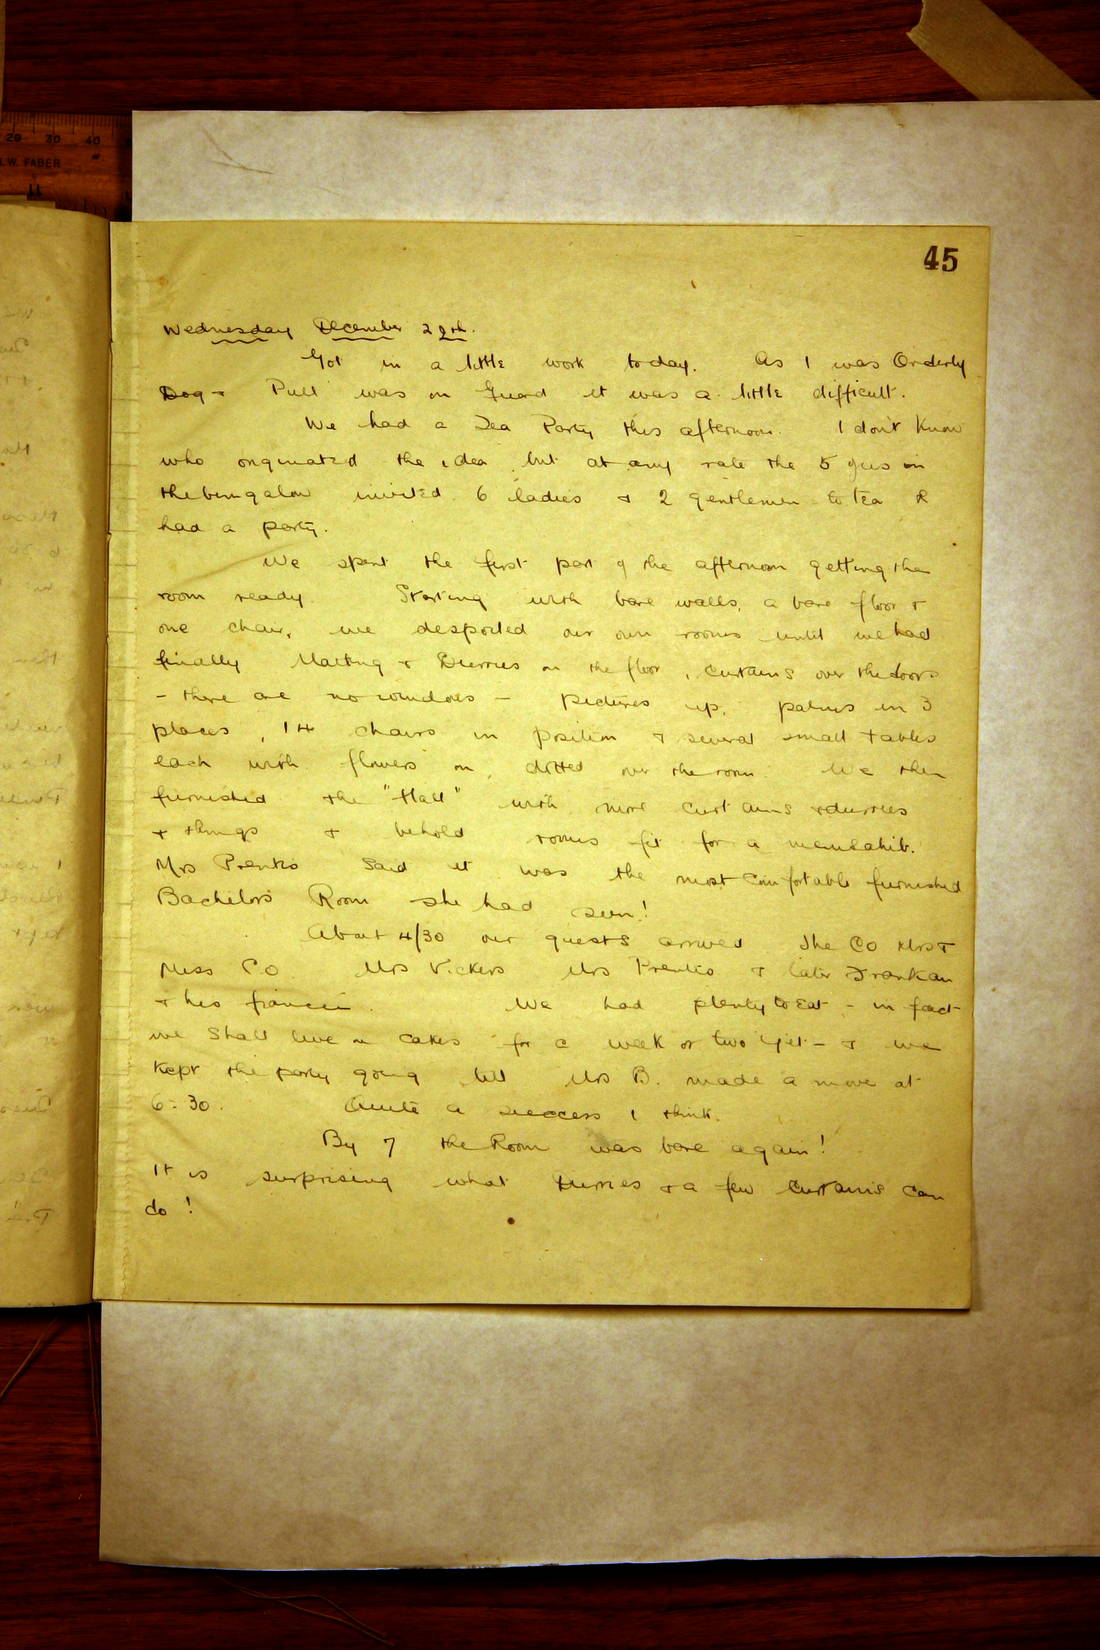 20 30 40
W. FABER
45
Wednesday December 29th.
Got in a little work today. As I was Orderly
Dog & Pull was on Guard it was a little difficult.
We had a Tea Party this afternoon. I don't know
who originated the idea but at any rate the 5 of us in
the bungalow invited 6 ladies & 2 gentlemen to tea &
had a party.
We spent the first part of the afternoon getting the
room ready. Starting with bare walls, a bare floor &
one chair, we despoiled our own rooms until we had
finally Matting & Durries on the floor, curtains over the doors
- there are no windows - pictures up, palms in 3
places, 14 chairs in position & several small tables
each with flowers on, dotted over the room. We then
furnished the "Hall" with more curtains & durries
& things & behold rooms fit for a memsahib.
Mrs Prentis said it was the most comfortable furnished
Bachelors Room she had seen!
About 4/30 our guests arrived The CO Mrs &
Miss CO Mrs Vickers Mrs Prentis & later
& his fiancée. We had plenty to eat - in fact
we shall live on cakes for a week or two yet - & we
kept the party going till Mrs B. made a move at
6-30. Quite a success I think.
By 7 the Room was bare again!
It is surprising what Durries & a few curtains can
do!